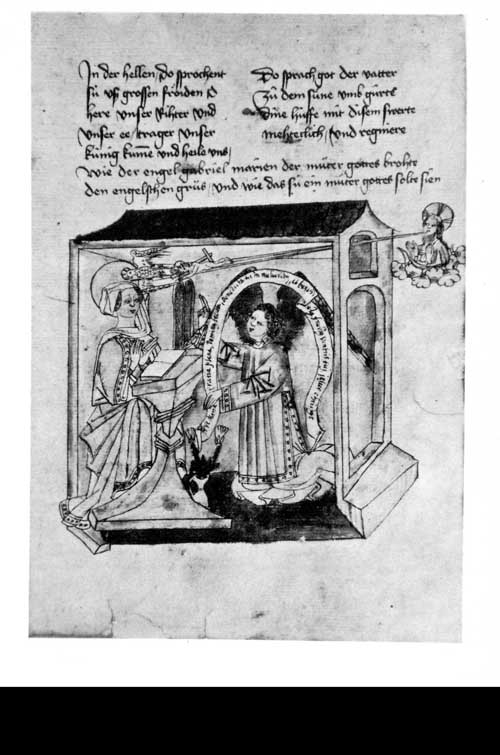 In der hellen / do sprochent
sú uß grossen froiden O
here unser Rihter und
unser ee / trager unser
kúnig kume und heile uns /
Do sprach got der vatter
Zů dem sune umb gúrte
dine húffe mit disem swerte
mehteclich / und regniere
wie der engel gabriel marien der můter gottes brohte
den engelschen grůs / und wie das sú ein můter gottes solte sien